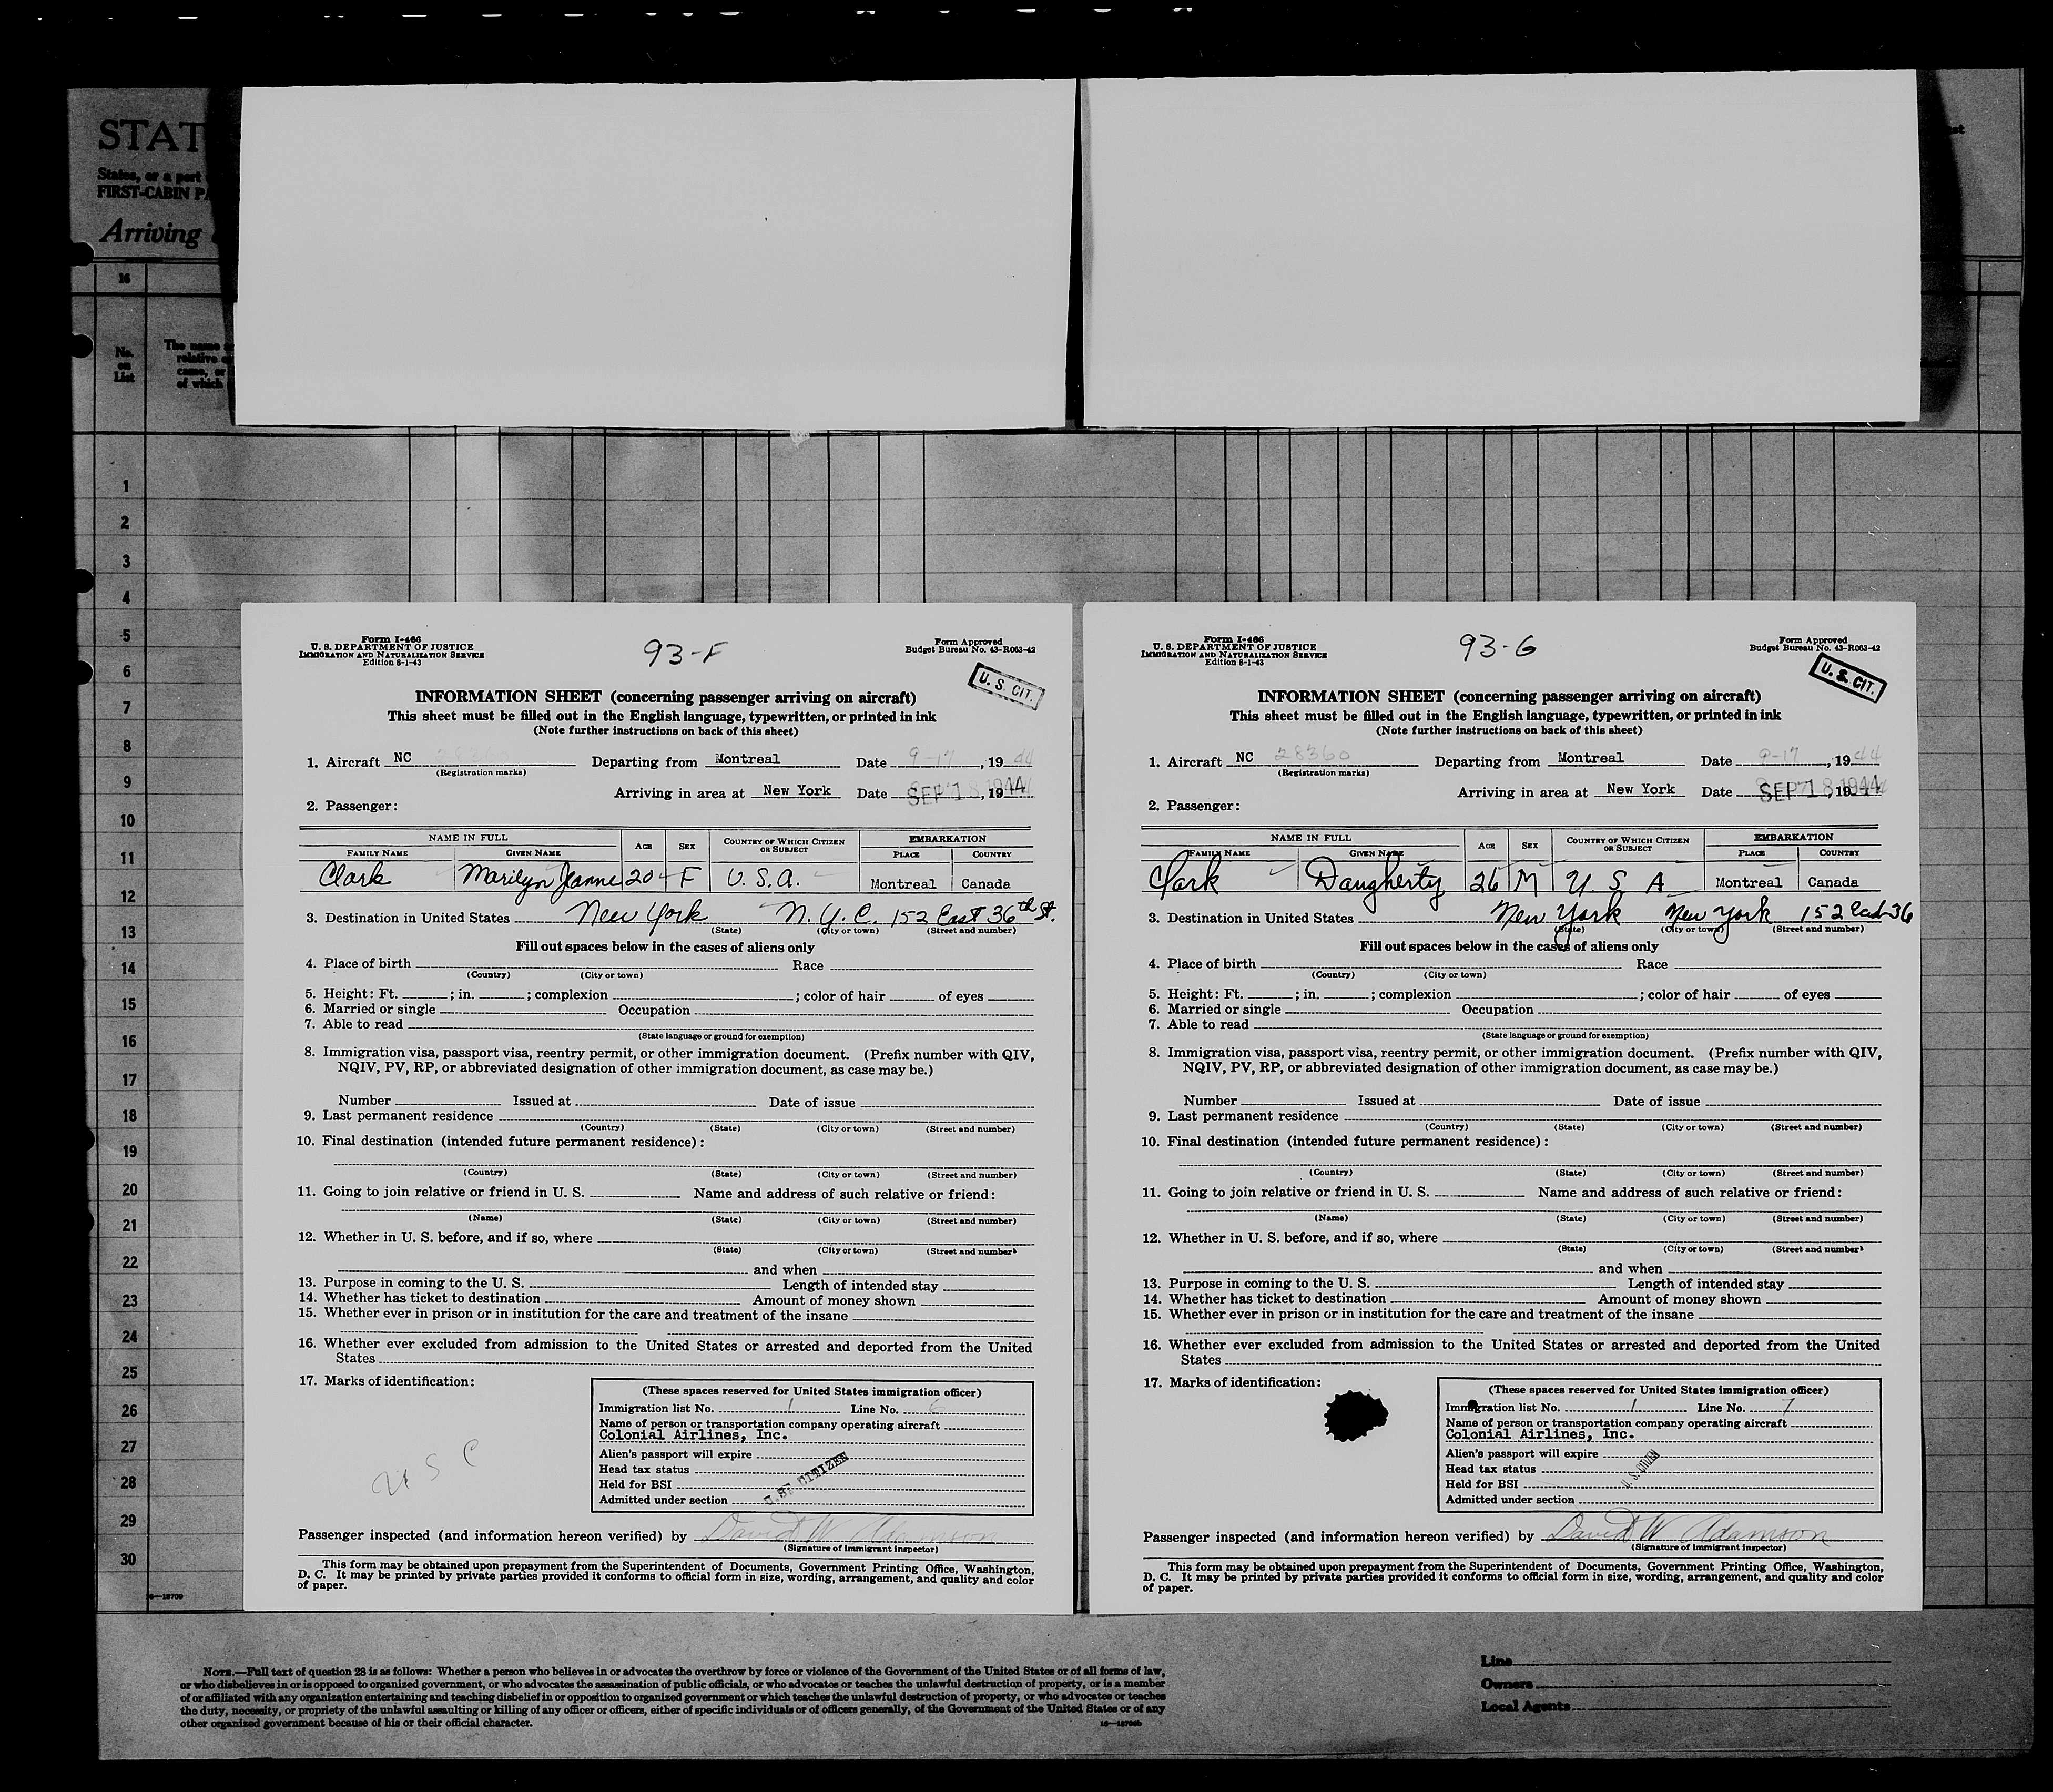 STAT
States, or a port
FIRST-CABIN PA
Arriving
16
No.
on
List
The name
relative
came, or
of which
1
2
3
4
5
6
7
8
9
10
11
12
13
14
15
16
17
18
19
20
21
22
23
24
25
26
27
28
29
30
Form I-466
U. S. DEPARTMENT OF JUSTICE
IMMIGRATION AND NATURALIZATION SERVICE
Edition 8-1-43
93-F
Form Approved
Budget Bureau No. 43-R063-42
U. S. CIT.
INFORMATION SHEET (concerning passenger arriving on aircraft)
This sheet must be filled out in the English language, typewritten, or printed in ink
(Note further instructions on back of this sheet)
1. Aircraft NC Departing from Montreal Date 9-17, 1944
(Registration marks)
Arriving in area at New York Date SEP 18, 1944
2. Passenger:
NAME IN FULL AGE SEX COUNTRY OF WHICH CITIZEN OR SUBJECT EMBARKATION
FAMILY NAME GIVEN NAME PLACE COUNTRY
Clark Marilyn Jeanne 20 F U.S.A. Montreal Canada
3. Destination in United States New York N.Y.C. 152 East 36th St.
(State) (City or town) (Street and number)
Fill out spaces below in the cases of aliens only
4. Place of birth Race
(Country) (City or town)
5. Height: Ft. ; in. ; complexion ; color of hair of eyes
6. Married or single Occupation
7. Able to read
(State language or ground for exemption)
8. Immigration visa, passport visa, reentry permit, or other immigration document. (Prefix number with QIV,
NQIV, PV, RP, or abbreviated designation of other immigration document, as case may be.)
Number Issued at Date of issue
9. Last permanent residence
(Country) (State) (City or town) (Street and number)
10. Final destination (intended future permanent residence):
(Country) (State) (City or town) (Street and number)
11. Going to join relative or friend in U. S. Name and address of such relative or friend:
(Name) (State) (City or town) (Street and number)
12. Whether in U. S. before, and if so, where
(State) (City or town) (Street and number)
and when
13. Purpose in coming to the U. S. Length of intended stay
14. Whether has ticket to destination Amount of money shown
15. Whether ever in prison or in institution for the care and treatment of the insane
16. Whether ever excluded from admission to the United States or arrested and deported from the United
States
17. Marks of identification:
U S C
(These spaces reserved for United States immigration officer)
Immigration list No. 1 Line No. 6
Name of person or transportation company operating aircraft
Colonial Airlines, Inc.
Alien's passport will expire
Head tax status
Held for BSI
Admitted under section
U. S. CITIZEN
Passenger inspected (and information hereon verified) by David W Adamson
(Signature of Immigrant Inspector)
This form may be obtained upon prepayment from the Superintendent of Documents, Government Printing Office, Washington,
D. C. It may be printed by private parties provided it conforms to official form in size, wording, arrangement, and quality and color
of paper.
Form I-466
U. S. DEPARTMENT OF JUSTICE
IMMIGRATION AND NATURALIZATION SERVICE
Edition 8-1-43
93-G
Form Approved
Budget Bureau No. 43-R063-42
U. S. CIT.
INFORMATION SHEET (concerning passenger arriving on aircraft)
This sheet must be filled out in the English language, typewritten, or printed in ink
(Note further instructions on back of this sheet)
1. Aircraft NC 28360 Departing from Montreal Date 9-17, 1944
(Registration marks)
Arriving in area at New York Date SEP 18, 1944
2. Passenger:
NAME IN FULL AGE SEX COUNTRY OF WHICH CITIZEN OR SUBJECT EMBARKATION
FAMILY NAME GIVEN NAME PLACE COUNTRY
Clark Daugherty 26 M U S A Montreal Canada
3. Destination in United States New York New York 152 East 36
(State) (City or town) (Street and number)
Fill out spaces below in the cases of aliens only
4. Place of birth Race
(Country) (City or town)
5. Height: Ft. ; in. ; complexion ; color of hair of eyes
6. Married or single Occupation
7. Able to read
(State language or ground for exemption)
8. Immigration visa, passport visa, reentry permit, or other immigration document. (Prefix number with QIV,
NQIV, PV, RP, or abbreviated designation of other immigration document, as case may be.)
Number Issued at Date of issue
9. Last permanent residence
(Country) (State) (City or town) (Street and number)
10. Final destination (intended future permanent residence):
(Country) (State) (City or town) (Street and number)
11. Going to join relative or friend in U. S. Name and address of such relative or friend:
(Name) (State) (City or town) (Street and number)
12. Whether in U. S. before, and if so, where
(State) (City or town) (Street and number)
and when
13. Purpose in coming to the U. S. Length of intended stay
14. Whether has ticket to destination Amount of money shown
15. Whether ever in prison or in institution for the care and treatment of the insane
16. Whether ever excluded from admission to the United States or arrested and deported from the United
States
17. Marks of identification:
(These spaces reserved for United States immigration officer)
Immigration list No. 1 Line No. 7
Name of person or transportation company operating aircraft
Colonial Airlines, Inc.
Alien's passport will expire
Head tax status
Held for BSI
Admitted under section
U. S. CITIZEN
Passenger inspected (and information hereon verified) by David W Adamson
(Signature of Immigrant Inspector)
This form may be obtained upon prepayment from the Superintendent of Documents, Government Printing Office, Washington,
D. C. It may be printed by private parties provided it conforms to official form in size, wording, arrangement, and quality and color
of paper.
NOTE.—Full text of question 28 is as follows: Whether a person who believes in or advocates the overthrow by force or violence of the Government of the United States or of all forms of law,
or who disbelieves in or is opposed to organized government, or who advocates the assassination of public officials, or who advocates or teaches the unlawful destruction of property, or is a member
of or affiliated with any organization entertaining and teaching disbelief in or opposition to organized government or which teaches the unlawful destruction of property, or who advocates or teaches
the duty, necessity, or propriety of the unlawful assaulting or killing of any officer or officers, either of specific individuals or of officers generally, of the Government of the United States or of any
other organized government because of his or their official character.
Line
Owners
Local Agents